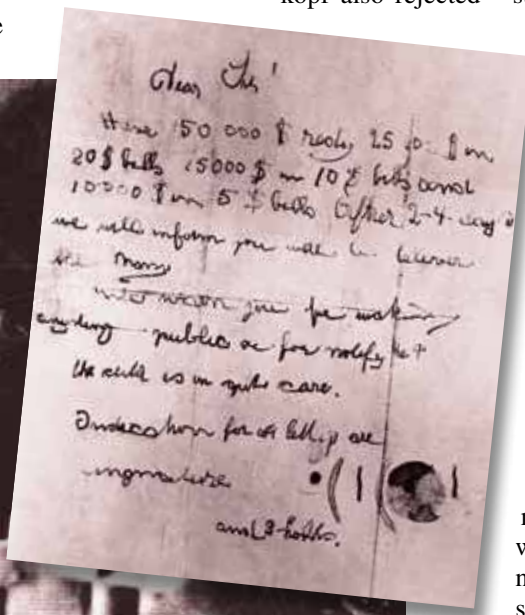 kopi also rejected
e
Dear Sir!
Have 50 000 $ redy 25 000 $ in
20 $ bills 15000 $ in 10 $ bills and
10000 $ in 5 $ bills After 2-4 days
we will inform you were to deliver
the Mony
you for making
anyding public or for notify the
the child is in gute care.
for all letters are
singnature
and 3 holds.